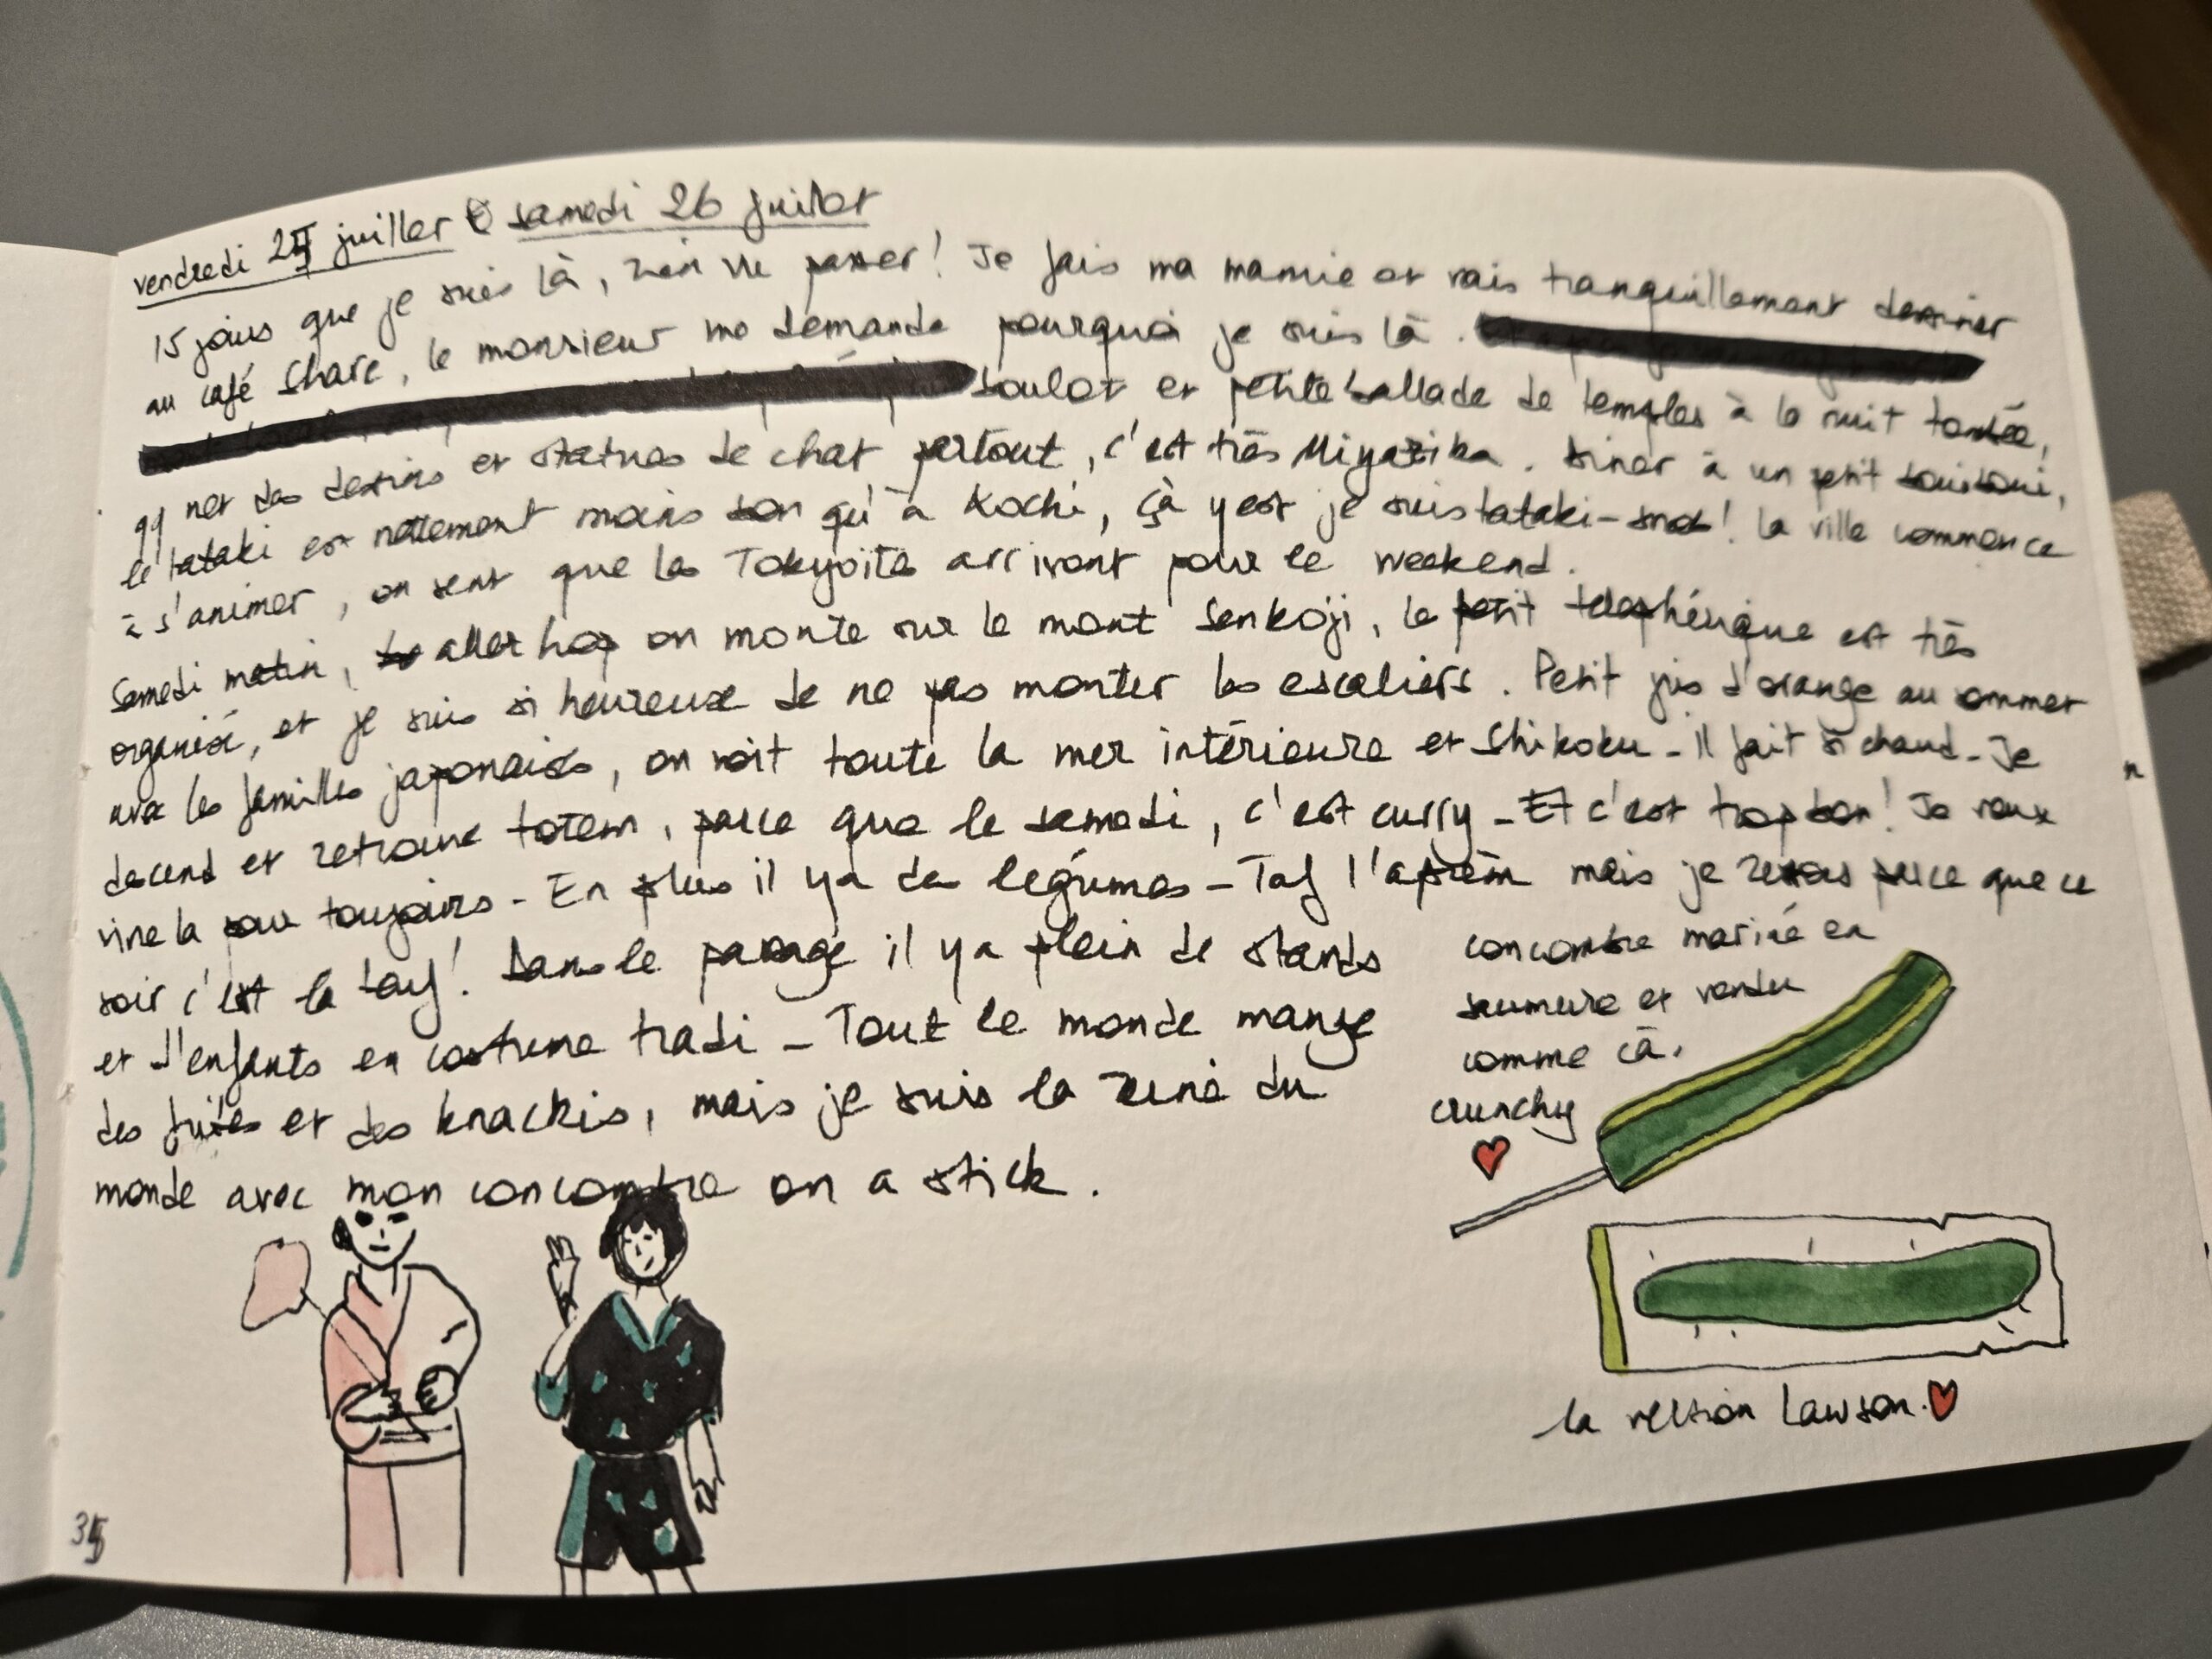 vendredi 25 juillet & samedi 26 juillet
15 jours que je suis là, rien vu passer! Je fais ma mamie et vais tranquillement dessiner
au café Share, le monsieur me demande pourquoi je suis là.
Boulot et petite ballade de temples à la nuit tombée,
qq net des dessins et statues de chat partout, c'est très Miyazika. Diner à un petit bouiboui,
le tataki est nettement moins bon qu'à Kochi, çà y est je suis tataki-snob! la ville commence
à s'animer, on sent que les Tokyoites arrivent pour le weekend.
Samedi matin, aller hop on monte sur le mont Senkoji, le petit telephérique est très
organisé, et je suis si heureuse de ne pas monter les escaliers. Petit jus d'orange au sommet
avec les familles japonaises, on voit toute la mer intérieure et Shikoku - il fait si chaud - Je
descend et retourne totem, parce que le samedi, c'est curry - Et c'est trop bon! Je veux
vivre la pour toujours - En plus il ya des légumes - Taf l'aprèm mais je ressors parce que ce
soir c'est la teuf! Dans le passage il ya plein de stands
et d'enfants en costume tradi - Tout le monde mange
des frites et des knackis, mais je suis la reine du
monde avec mon concombre on a stick.
concombre mariné en
saumure et vendu
comme çà.
crunchy
la version Lawson.
35